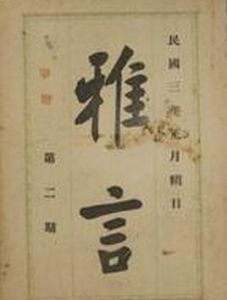 民國三年元月輯日
雅言
第二期